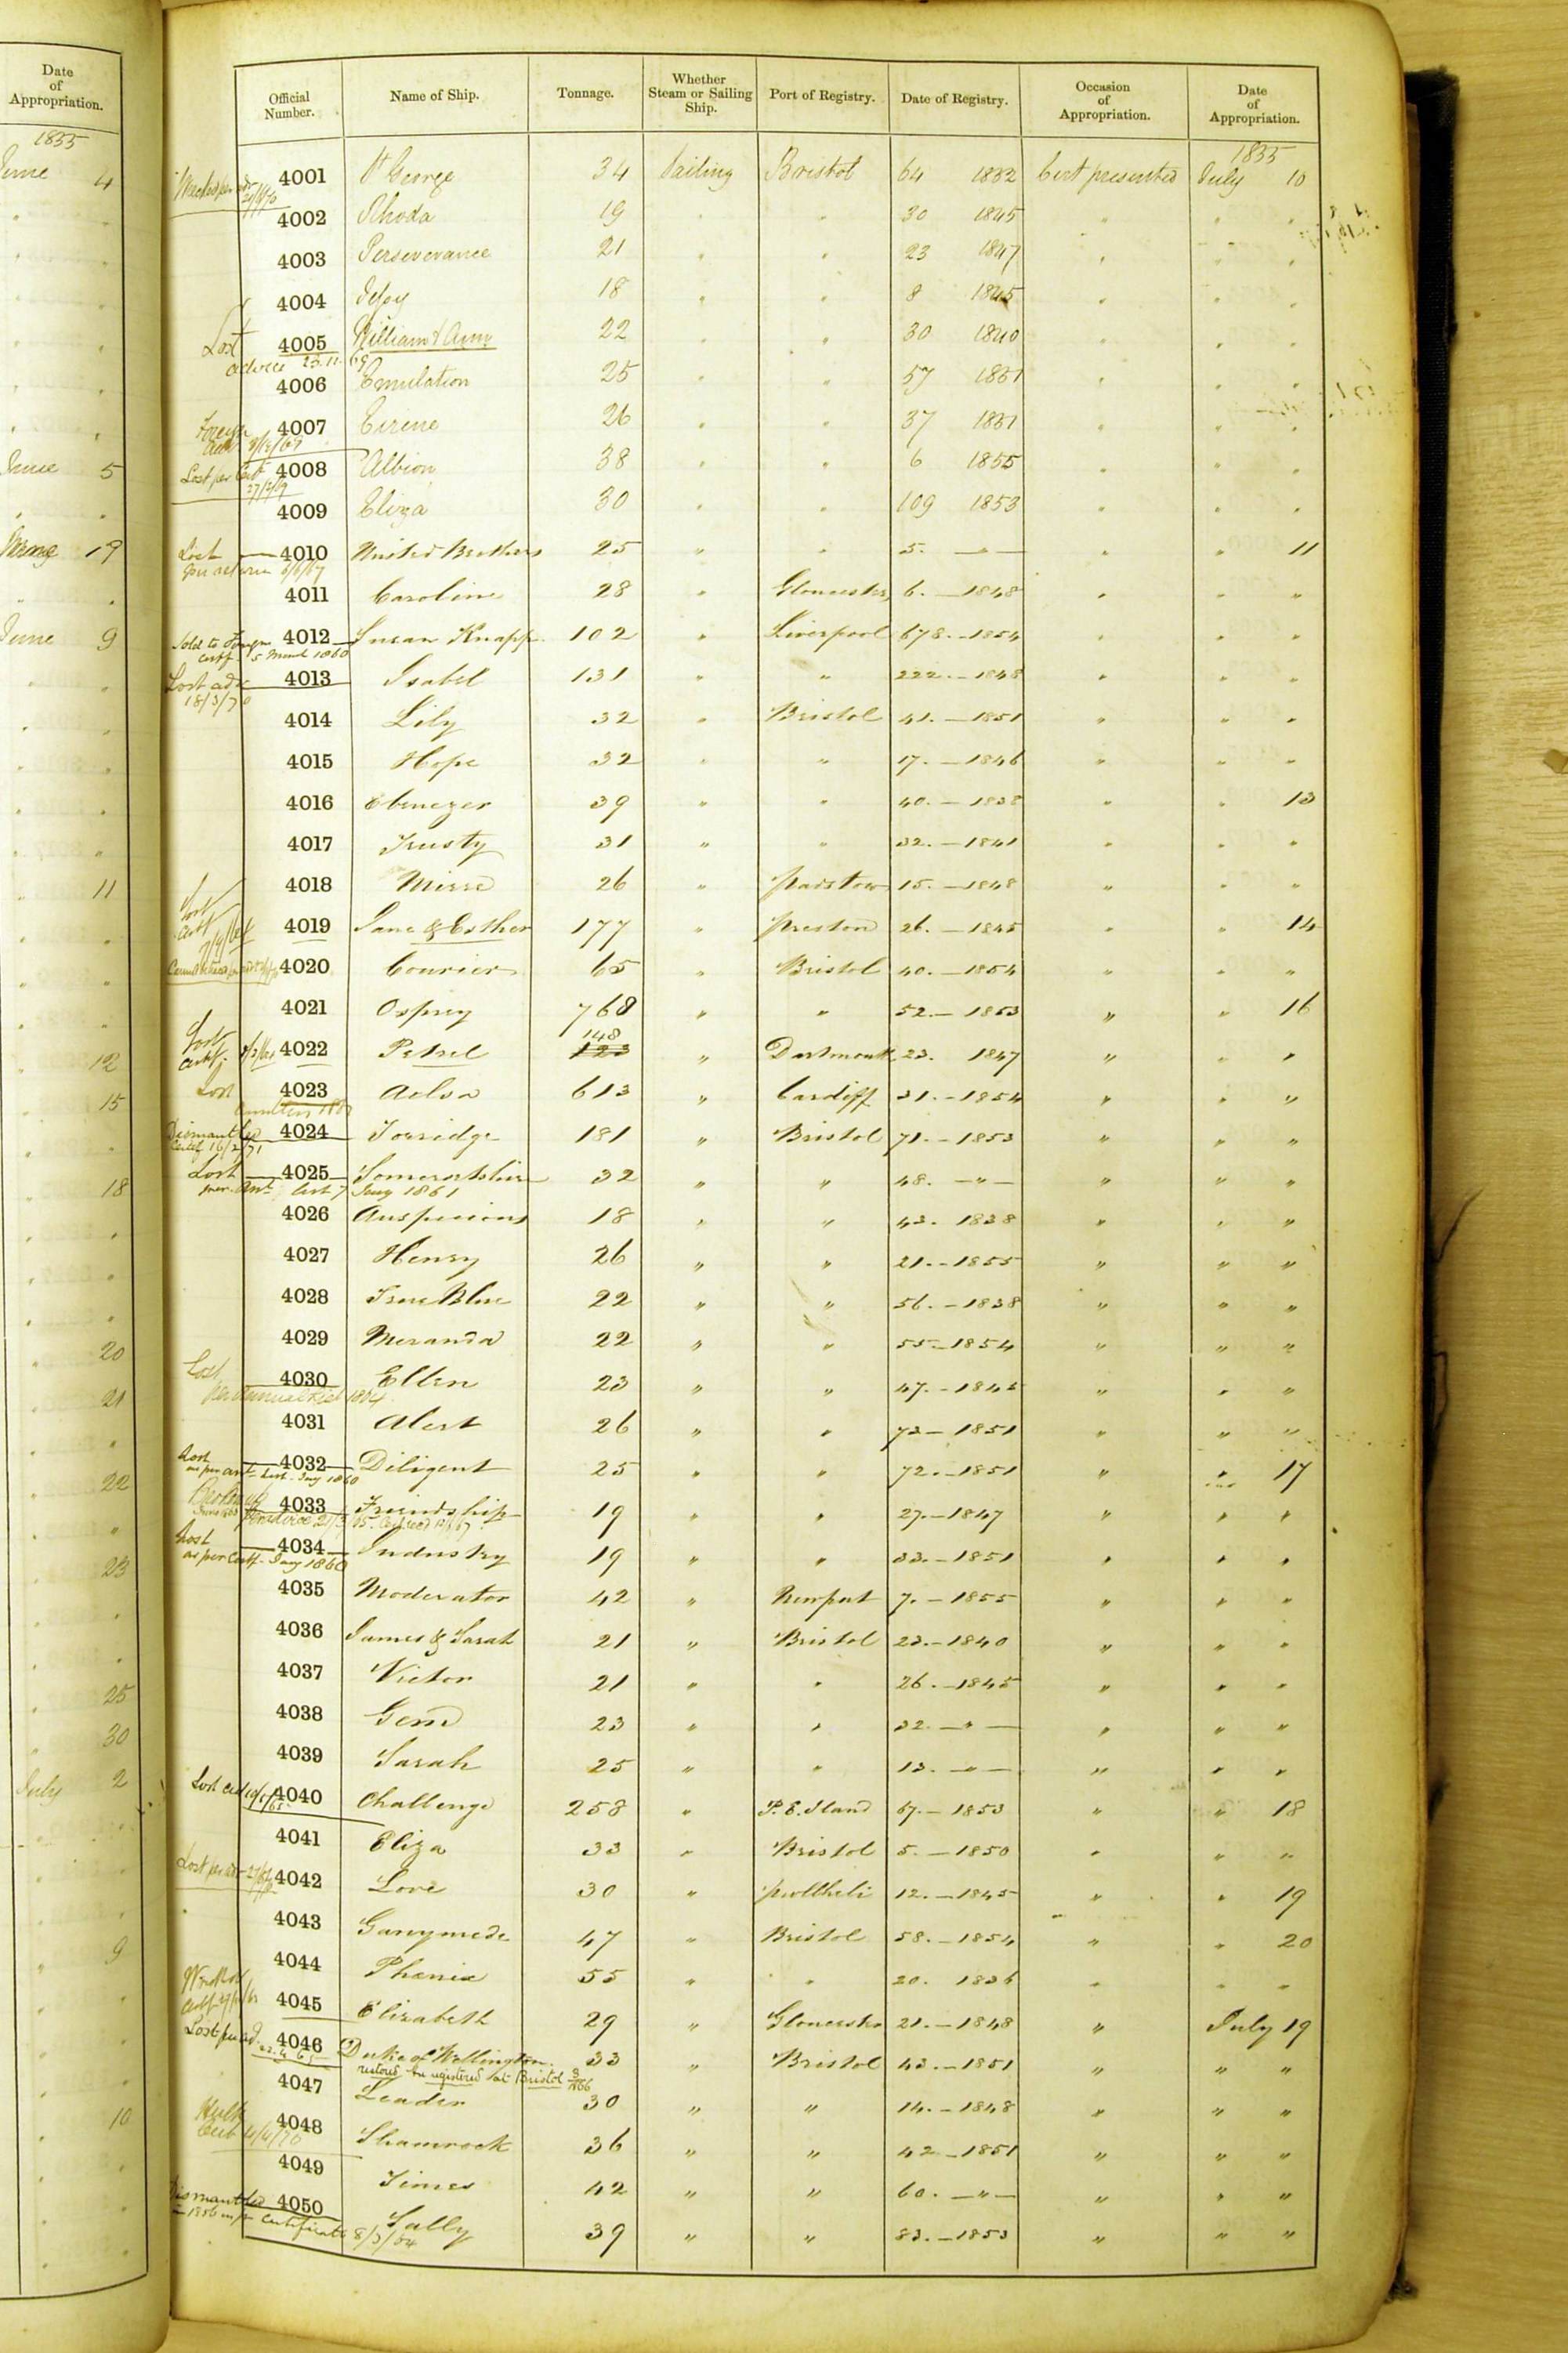 Date of Appropriation.
1855
June 4
June 5
19
June 9
11
12
15
18
20
21
22
23
25
30
July 2
9
10
Official Number. Name of Ship. Tonnage. Whether Steam or Sailing Ship. Port of Registry. Date of Registry. Occasion of Appropriation. Date of Appropriation.
1855
4001 St George 34 Sailing Bristol 64 1832 Cert presented July 10
4002 Rhoda 19 " " 30 1845 " " "
4003 Perseverance 21 " " 23 1847 " " "
4004 18 " " 8 1845 " " "
Lost 4005 William & Ann 22 " " 30 1840 " " "
advice 23.11.69
4006 Emulation 25 " " 57 1851 " " "
Foreign 4007 Eirene 26 " " 37 1831 " " "
Lost per Cert 4008 Albion 38 " " 6 1855 " " "
4009 Eliza 30 " " 109 1853 " " "
Lost 4010 United Brothers 25 " " 5. — " — " " 11
per return 6/6/67
4011 Caroline 28 " Gloucester 6. — 1848 " " "
Sold to Foreign 4012 Susan Knapp 102 " Liverpool 678. — 1854 " " "
certf. 5 March 1860
Lost adv 4013 Isabel 131 " " 222. — 1848 " " "
18/3/70
4014 Lily 32 " Bristol 41. — 1851 " " "
4015 Hope 32 " " 17. — 1846 " " "
4016 Ebenezer 39 " " 40. — 1838 " " 13
4017 Trusty 31 " " 32. — 1841 " " "
4018 26 " Padstow 15. — 1848 " " "
Lost certf 4019 Jane & Esther 177 " Preston 26. — 1845 " " 14
4020 Courier 65 " Bristol 40. — 1854 " " "
4021 Osprey 768 " " 52. — 1853 " " 16
148
Lost certf. 4022 Petrel 123 " Dartmouth 23. 1847 " " "
Lost 4023 613 " Cardiff 31. — 1854 " " "
Dismantled 4024 Torridge 181 " Bristol 71. — 1853 " " "
Certf 16/2/71
Lost 4025 Somersetshire 32 " " 48. — " — " " "
per Ant list 7 Jany 1861
4026 Auspicious 18 " " 43. 1838 " " "
4027 Henry 26 " " 21. — 1855 " " "
4028 True Blue 22 " " 56. — 1838 " " "
4029 Meranda 22 " " 55 — 1854 " " "
Lost 4030 Ellen 23 " " 47. — 1845 " " "
per Annual List 1864
4031 Alert 26 " " 73 — 1851 " " "
Lost 4032 Diligent 25 " " 72. — 1851 " " 17
as per ant list Jany 1860
4033 Friendship 19 " " 27. — 1847 " " "
Lost 4034 Industry 19 " " 33. — 1851 " " "
as per Certf. Jany 1860
4035 Moderator 42 " Newport 7. — 1855 " " "
4036 James & Sarah 21 " Bristol 23. — 1840 " " "
4037 Victor 21 " " 26. — 1845 " " "
4038 Gem 23 " " 32. — " — " " "
4039 Sarah 25 " " 13. — " — " " "
Lost 4040 Challenge 258 " P. E. Iland 67. — 1853 " " 18
4041 Eliza 33 " Bristol 5. — 1850 " " "
Lost per adv 4042 Love 30 " Pwllheli 12. — 1845 " " 19
4043 Ganymede 47 " Bristol 58. — 1854 " " 20
4044 Phenix 55 " " 20. 1836 " " "
Wrecked 4045 Elizabeth 29 " Gloucester 21. — 1848 " July 19
Lost per ad. 4046 Duke of Wellington 33 " Bristol 43. — 1851 " " "
restored be registered at Bristol
4047 Leader 30 " " 14. — 1848 " " "
Hulk 4048 Shamrock 36 " " 42 — 1851 " " "
Cert 4/4/70
4049 Times 42 " " 60. — " — " " "
Dismantled 4050 Sally 39 " " 83. — 1853 " " "
certificate 8/3/64